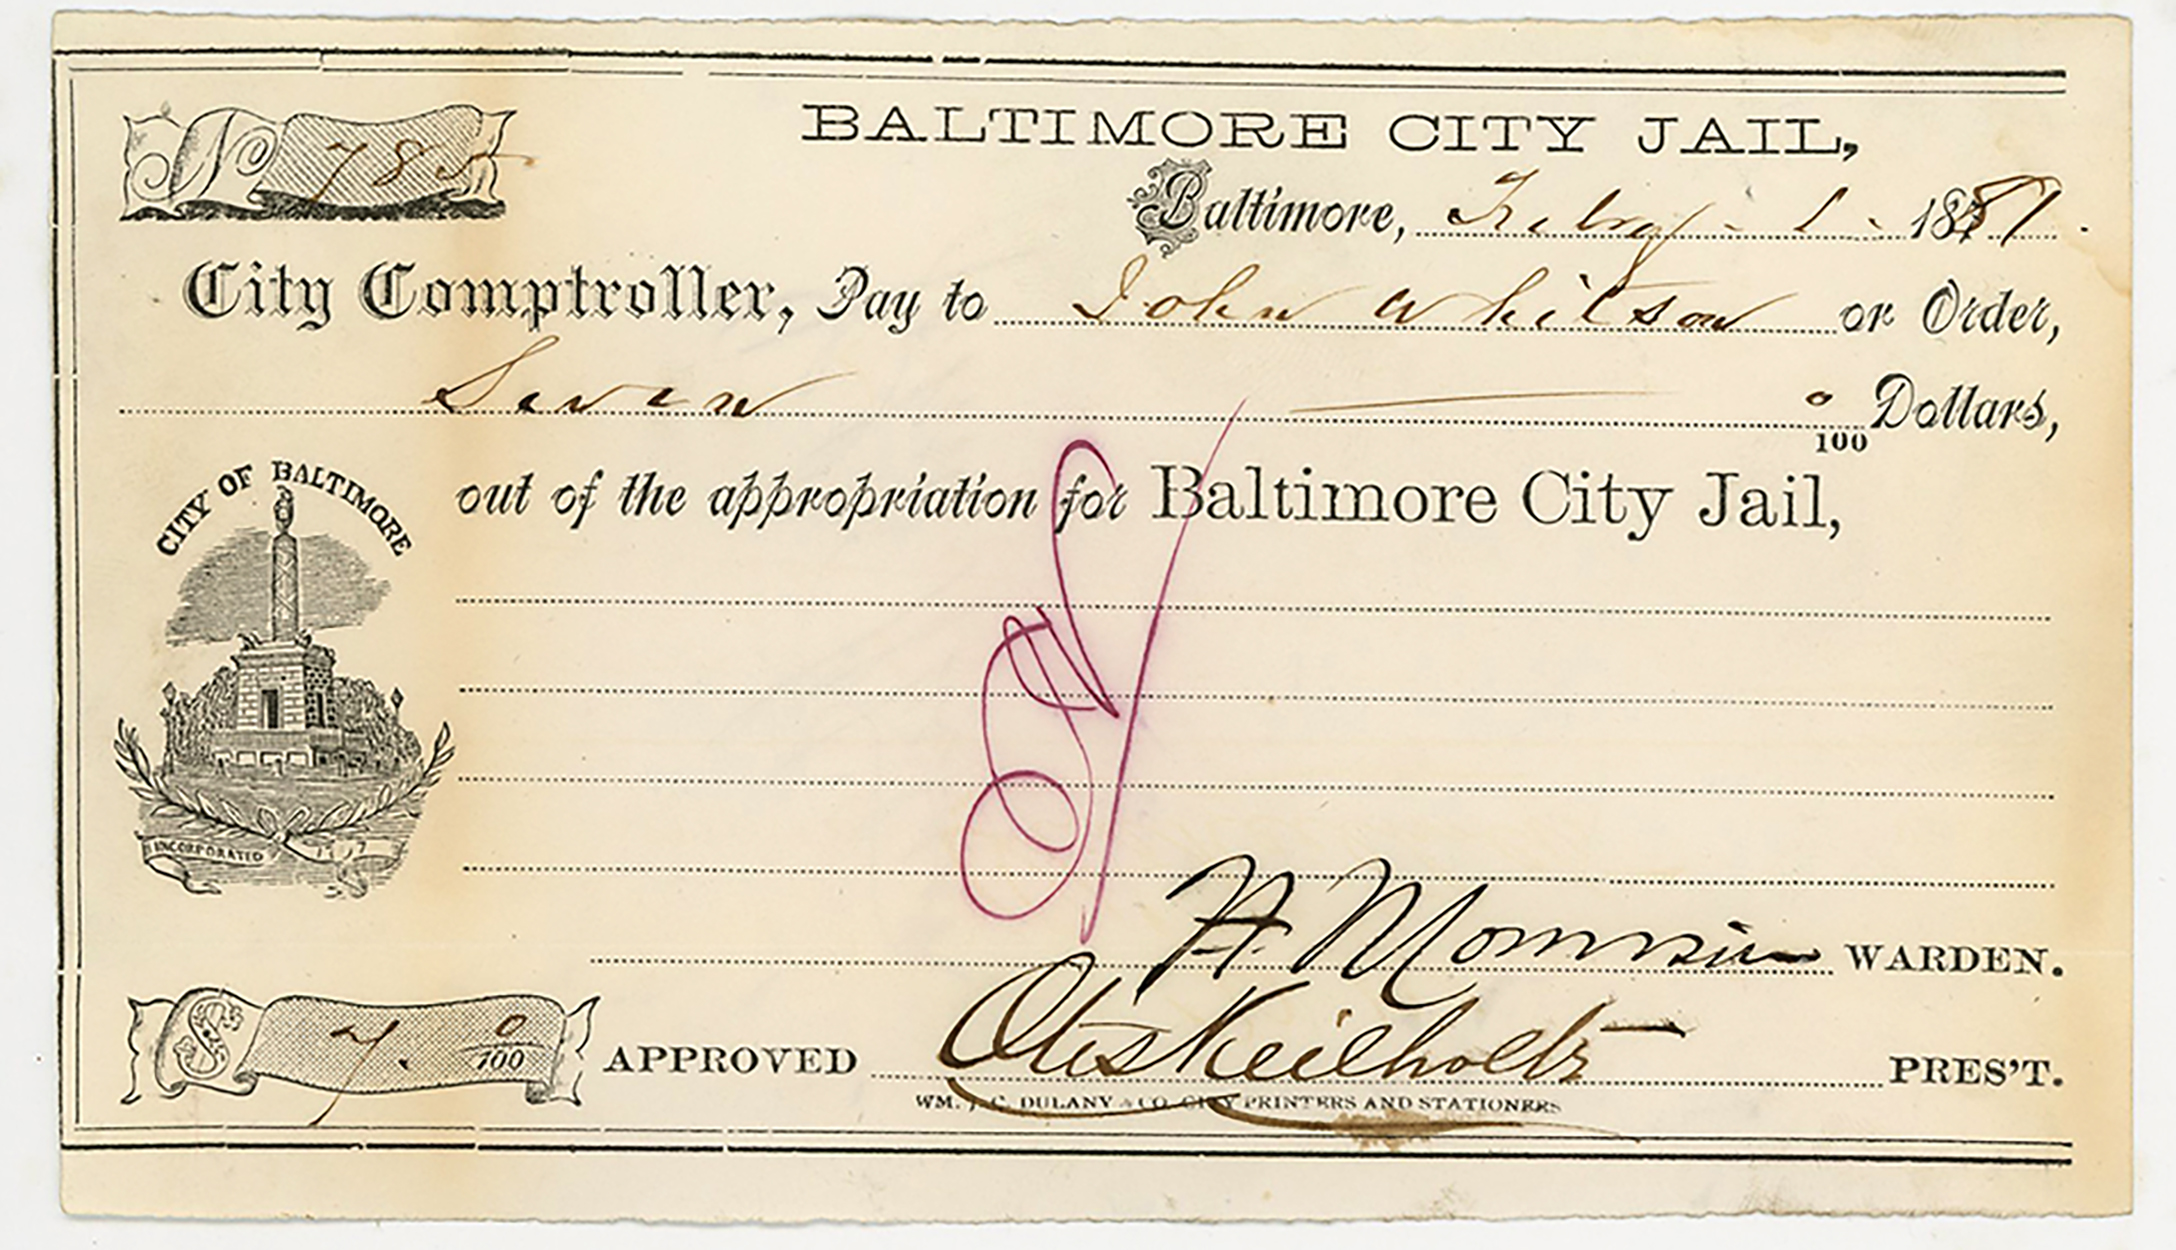 No 785
BALTIMORE CITY JAIL,
Baltimore, Feby - 1 - 1881.
City Comptroller, Pay to John Whitson or Order,
Seven 0/100 Dollars,
out of the appropriation for Baltimore City Jail,
CITY OF BALTIMORE
INCORPORATED 1797
WARDEN.
$ 7. 0/100 APPROVED Otis Keilholtz PRES'T.
WM. J. C. DULANY & CO. CITY PRINTERS AND STATIONERS